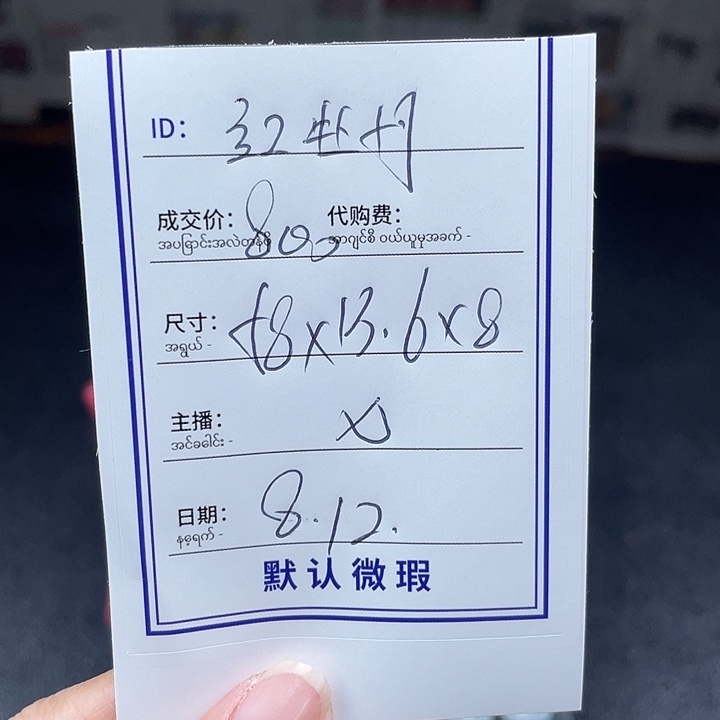 ID: 红牡丹
成交价: 800 代购费:
အပြောင်းအလဲတန်ဖိုး အာဂျင်စီ ဝယ်ယူမှုအခက် -
尺寸: 58x13.6x8
အရွယ် -
主播:
အင်ခခေါင်း -
日期: 8.12.
နေ့ရက် -
默认微瑕